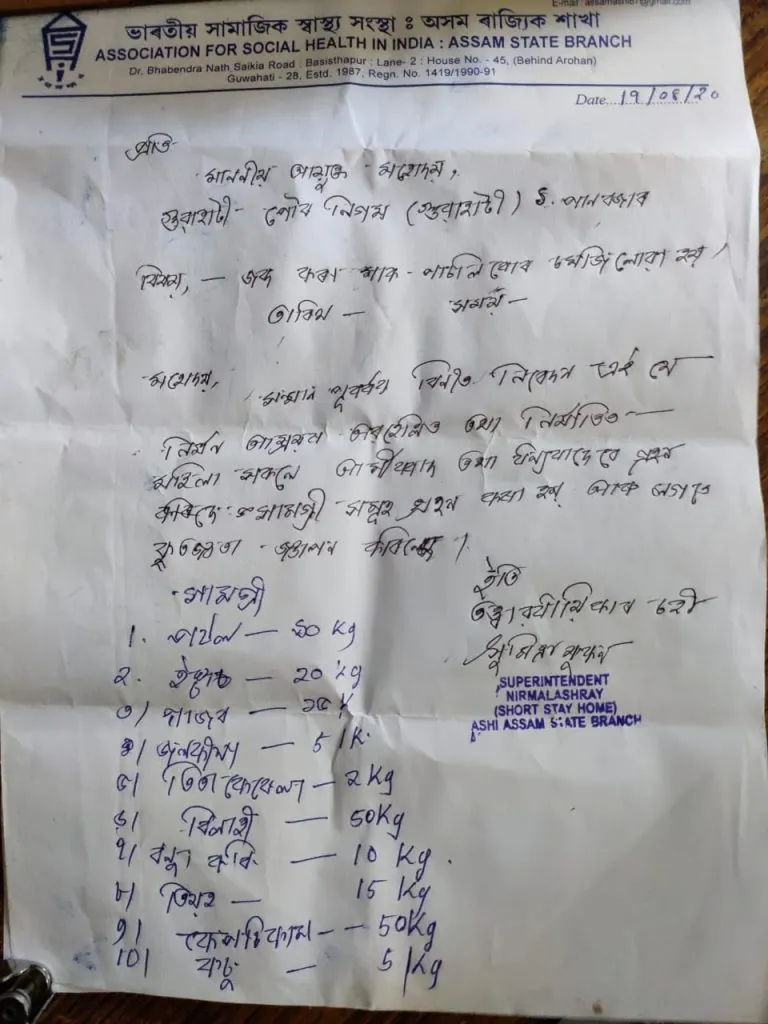 E-mail : assamashib1@gmail.com
ভাৰতীয় সামাজিক স্বাস্থ্য সংস্থা : অসম ৰাজ্যিক শাখা
ASSOCIATION FOR SOCIAL HEALTH IN INDIA : ASSAM STATE BRANCH
Dr. Bhabendra Nath Saikia Road : Basisthapur : Lane- 2 : House No. - 45, (Behind Arohan)
Guwahati - 28, Estd. 1987, Regn. No. 1419/1990-91
Date...19/08/20
প্ৰতি
মাননীয় আয়ুক্ত মহোদয়,
গুৱাহাটী পৌৰ নিগম (গুৱাহাটী) পানবজাৰ
বিষয়, — জব্দ কৰা শাক - পাচলি বোৰ লোৱা হয়।
তাৰিখ — সময় —
মহোদয়,
সন্মান পূৰ্বক বিনীত নিবেদন এই যে
তথা নিৰ্যাতিত
মহিলা সকলে তথা ধন্যবাদেৰে গ্ৰহণ
কৰিছে। সামগ্ৰী সমূহ গ্ৰহণ কৰা হয় আৰু লগতে
কৃতজ্ঞতা জ্ঞাপন কৰিলোঁ।
ইতি
তত্ত্বাৱধায়িকাৰ চহী
SUPERINTENDENT
NIRMALASHRAY
(SHORT STAY HOME)
ASHI ASSAM STATE BRANCH
সামগ্ৰী
1. — Kg
২. — 20 Kg
৩) গাজৰ — K
৪) জলকীয়া — 5 K.
৫) তিতা কেৰেলা — 2 Kg
৬) বিলাহী — 50 Kg
৭) বন্ধা কবি — 10 Kg.
৮) তিয়ঁহ — 15 Kg
৯) কেপচিকাম — 50 Kg
10) কচু — 5 Kg